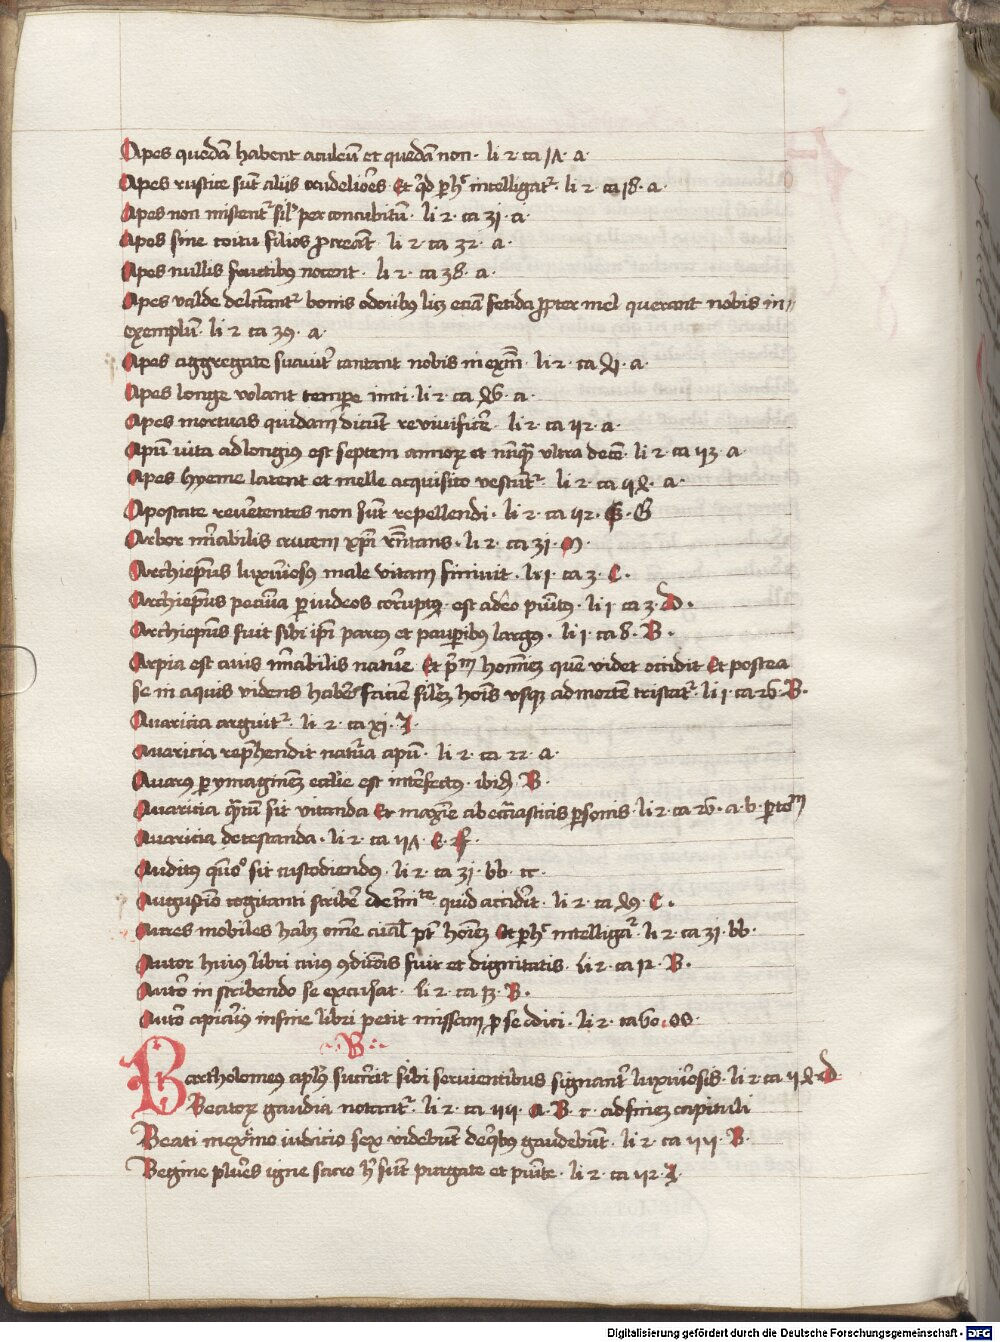 Apes quedā habent aculeū et quedā non · li 2 · ca 1Λ · a
Apes rustice sūt alijs crudeliores Et qd p hͦ intelligatʳ · li 2 · ca 18 · a ·
Apes non miscentʳ sil' per concubitū · li 2 · ca 31 · a ·
Apes sine coitu filios ꝓcreāt li 2 · ca 32 · a ·
Apes nullis fructibꝰ nocent · li 2 · ca 38 · a ·
Apes valde delectantʳ bonis odoribꝰ licꝫ eciā fetida ꝓpter mel querant nobis in//
exemplū · li 2 · ca 39 · a ·
Apes aggregate suauitʳ cantant nobis in exm̄ · li 2 · ca · a ·
Apes longe volant tempore · li 2 · ca · a ·
Apes mortuas quidam dicūt reviuificē · li 2 · ca 42 · a ·
Apū vita ad longiꝰ est septem annoꝝ et nūꝙ̄ vltra decē · li 2 · ca 43 · a
Apes hyeme latent et melle acquisito vescūtʳ · li 2 · ca · a ·
Apostate reuertentes non sūt repellendi · li 2 · ca 42 · G
Arbor mirabilis crucem xp̄i · li 2 · ca 31 · m ·
Archiep̄us luxuriosꝰ male vitam finiuit · li 1 · ca 3 · C ·
Archiep̄us pecūia ꝑ iudeos corruptꝰ est adeo pūitꝰ · li 1 ca 3 · D ·
Archiep̄us fuit sibi ip̄i parcꝰ et pauꝑibꝰ largꝰ · li 1 · ca 8 · B ·
Arpia est auis mirabilis nature Et pmͫ hominē quē videt occidit Et postea
se in aquis videns haber̄ faciē silē hoīs vsqꝫ ad mortē tristatʳ · li 1 · ca 26 · B ·
Auaricia arguitʳ · li 2 · ca xj · J
Auaricia rep̄hendit natura apū · li 2 · ca 22 · a ·
Auarꝰ ꝑ ymaginē eccl'ie est interfectꝰ · ibid' B ·
Auaricia qntū sit vitanda Et maxīe ab eccl'iasticis ꝑsonis · li 2 · ca 26 · a · b · ꝑ totͫ
Auaricia detestanda · li 2 · ca 4Λ · E · f ·
Auditꝰ quōͦ sit custodiendꝰ · li 2 · ca 31 · bb · cc ·
Augustīo cogitanti scriber̄ de quid accidit · li 2 · ca · C ·
Aures mobiles habꝫ om̄e aīal p̄t hoīem Et p hͦ intelligaʳ · li 2 · ca 31 · bb ·
Autor huiꝰ libri cuiꝰ ꝯdicōis fuit et dignitatis · li 2 · ca 12 · B ·
Autor in scribendo se excusat · li 2 · ca 13 · B ·
Autor in fine libri petit missam ꝓ se dici · li 2 · ca
B
Bartholomeꝰ apl's sucurrit sibi seruientibus signantʳ luxuriosis · li 2 · ca · D
Beatoꝝ gaudia notantʳ · li 2 · ca · a · B · c · ad finem capituli
Beati in iudicio sex videbūt de qbꝰ gaudebūt · li 2 · ca · B ·
Begine plures igne sacro hic sūt purgate et pūite · li 2 · ca 42 · J
Digitalisierung gefördert durch die Deutsche Forschungsgemeinschaft - DFG